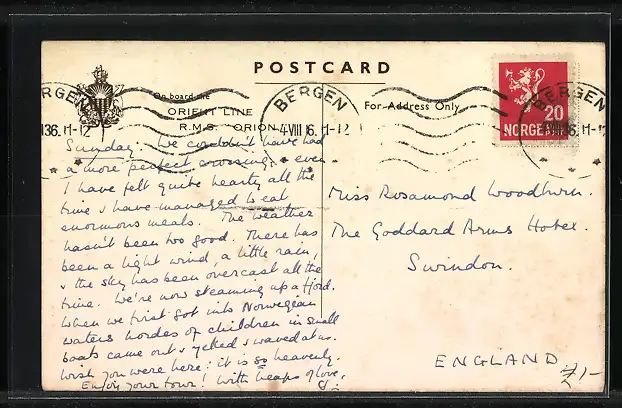 POSTCARD
On board the
ORIENT LINE
R.M.S. "ORION"
For Address Only
BERGEN
4 VIII 36. 11-12
BERGEN
136. 11-12
BERGEN
6. 11-12
20
NORGE
Sunday. We couldn't have had
a more perfect crossing, even
I have felt quite hearty all the
time & have managed to eat
enormous meals. The weather
hasn't been too good. There has
been a light wind, a little rain,
& the sky has been overcast all the
time. We're now steaming up a fjord.
When we first got into Norwegian
waters hordes of children in small
boats came out & yelled & waved at us.
Wish you were here: it is so heavenly.
Enjoy your tour! With heaps of love,
Miss Rosamond
The Goddard Arms Hotel.
Swindon.
ENGLAND